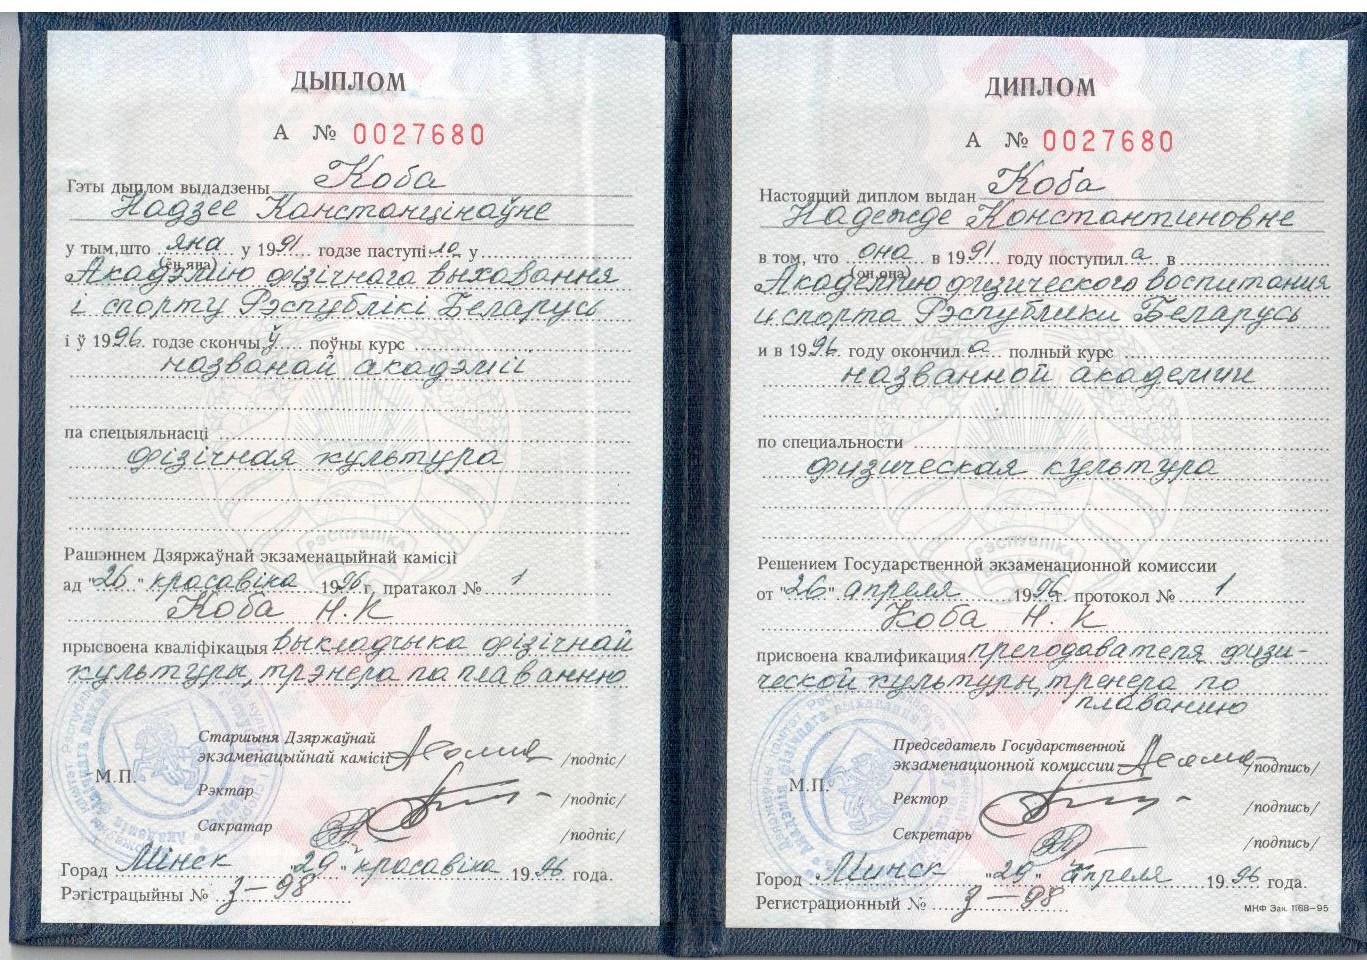 ДЫПЛОМ
А № 0027680
Гэты дыплом выдадзены Коба
Надзее Канстанцінаўне
у тым,што яна у 1991 годзе паступіла у
(ён,яна)
Акадэмію фізічнага выхавання
і спорту Рэспублікі Беларусь
і ў 1996. годзе скончыў поўны курс
названай акадэміі
па спецыяльнасці
фізічная культура
Рашэннем Дзяржаўнай экзаменацыйнай камісіі
ад "26" красавіка 1996 г. пратакол № 1
Коба Н.К
прысвоена кваліфікацыя выкладчыка фізічнай
культуры, трэнера па плаванню
Старшыня Дзяржаўнай
экзаменацыйнай камісіі /подпіс/
М.П.
Рэктар /подпіс/
Сакратар /подпіс/
Горад Мінск "29" красавіка 1996 года.
Рэгістрацыйны № 3-98
ДИПЛОМ
А № 0027680
Настоящий диплом выдан Коба
Надежде Константиновне
в том, что она в 1991 году поступила в
(он,она)
Академию физического воспитания
и спорта Рэспублики Беларусь
и в 1996 году окончила полный курс
названной академии
по специальности
физическая культура
РЭСПУБЛІКА
Решением Государственной экзаменационной комиссии
от "26" апреля 1996 г. протокол № 1
Коба Н.К
присвоена квалификация преподавателя физи-
ческой культуры, тренера по
плаванию
Председатель Государственной
экзаменационной комиссии /подпись/
М.П.
Ректор /подпись/
Секретарь /подпись/
Город Минск "29" апреля 1996 года.
Регистрационный № 3-98
МНФ Зак. 1168-95